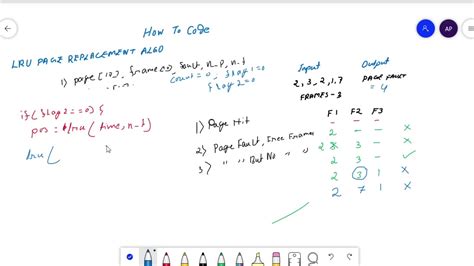 AP
How To Code
LRU PAGE REPLACEMENT ALGO
1) page[10], frame[], fault, n-p, n-f
count = 0, flag1 = 0
flag2 = 0
if (flag2 == 0) {
pos = lru( time, n-f)
lru(
1) Page Hit
2) Page Fault, Free Frames
3) " " But No " "
Input Output
2, 3, 2, 1, 7 PAGE FAULT
FRAMES - 3 = 4
F1 F2 F3
- - -
2 - - x
2 3 - x
2 3 - ✓
2 3 1 x
2 7 1 x